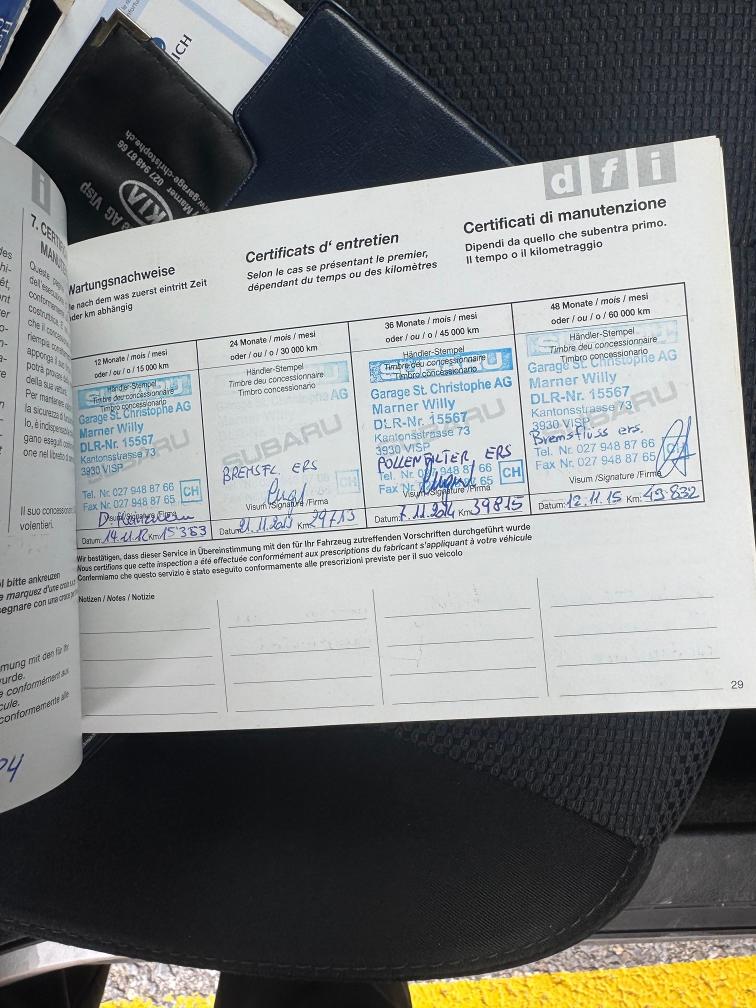 RICH
027 948 87 66
www.garage-christophe.ch
Marner
AG Visp
KIA
i
d f i
7. CERTIF
Wartungsnachweise
Je nach dem was zuerst eintritt Zeit
oder km abhängig
Certificats d' entretien
Selon le cas se présentant le premier,
dépendant du temps ou des kilomètres
Certificati di manutenzione
Dipendi da quello che subentra primo.
Il tempo o il kilometraggio
12 Monate / mois / mesi
oder / ou / o / 15 000 km
Händler-Stempel
Timbre deu concessionnaire
Timbro concessionario
Garage St. Christophe AG
Marner Willy
DLR-Nr. 15567
Kantonsstrasse 73
3930 VISP
Tel. Nr. 027 948 87 66
Fax Nr. 027 948 87 65
CH
Visum/Signature/Firma
Datum: 14.11.12 Km: 15'383
24 Monate / mois / mesi
oder / ou / o / 30 000 km
Händler-Stempel
Timbre du concessionnaire
Timbro concessionario
AG
SUBARU
BREMSFL. ERS
CH
Visum/Signature/Firma
Datum: 21.11.2013 Km: 29713
36 Monate / mois / mesi
oder / ou / o / 45 000 km
Händler-Stempel
Timbre du concessionnaire
Timbro concessionario
Garage St. Christophe AG
Marner Willy
DLR-Nr. 15567
Kantonsstrasse 73
3930 VISP
POLLENFILTER, ERS
948 87 66
Fax Nr. 948 87 65
CH
Visum/Signature/Firma
Datum: 7.11.2014 Km: 39815
48 Monate / mois / mesi
oder / ou / o / 60 000 km
Händler-Stempel
Timbre du concessionnaire
Timbro concessionario
Garage St. Christophe AG
Marner Willy
DLR-Nr. 15567
Kantonsstrasse 73
3930 VISP
Bremsfluss ers.
Tel. Nr. 027 948 87 66
Fax Nr. 027 948 87 65
CH
Visum /Signature /Firma
Datum: 12.11.15 Km: 49.832
Wir bestätigen, dass dieser Service in Übereinstimmung mit den für Ihr Fahrzeug zutreffenden Vorschriften durchgeführt wurde
Nous certifions que cette inspection a été effectuée conformément aux prescriptions du fabricant s'appliquant à votre véhicule
Confermiamo che questo servizio è stato eseguito conformamente alle prescrizioni previste per il suo veicolo
Notizen / Notes / Notizie
29
Il suo concessionario
volentieri.
bitte ankreuzen
marquez d'une croix
segnare con una croce
mung mit den für Ihr
wurde.
conformément aux
conformemente alle